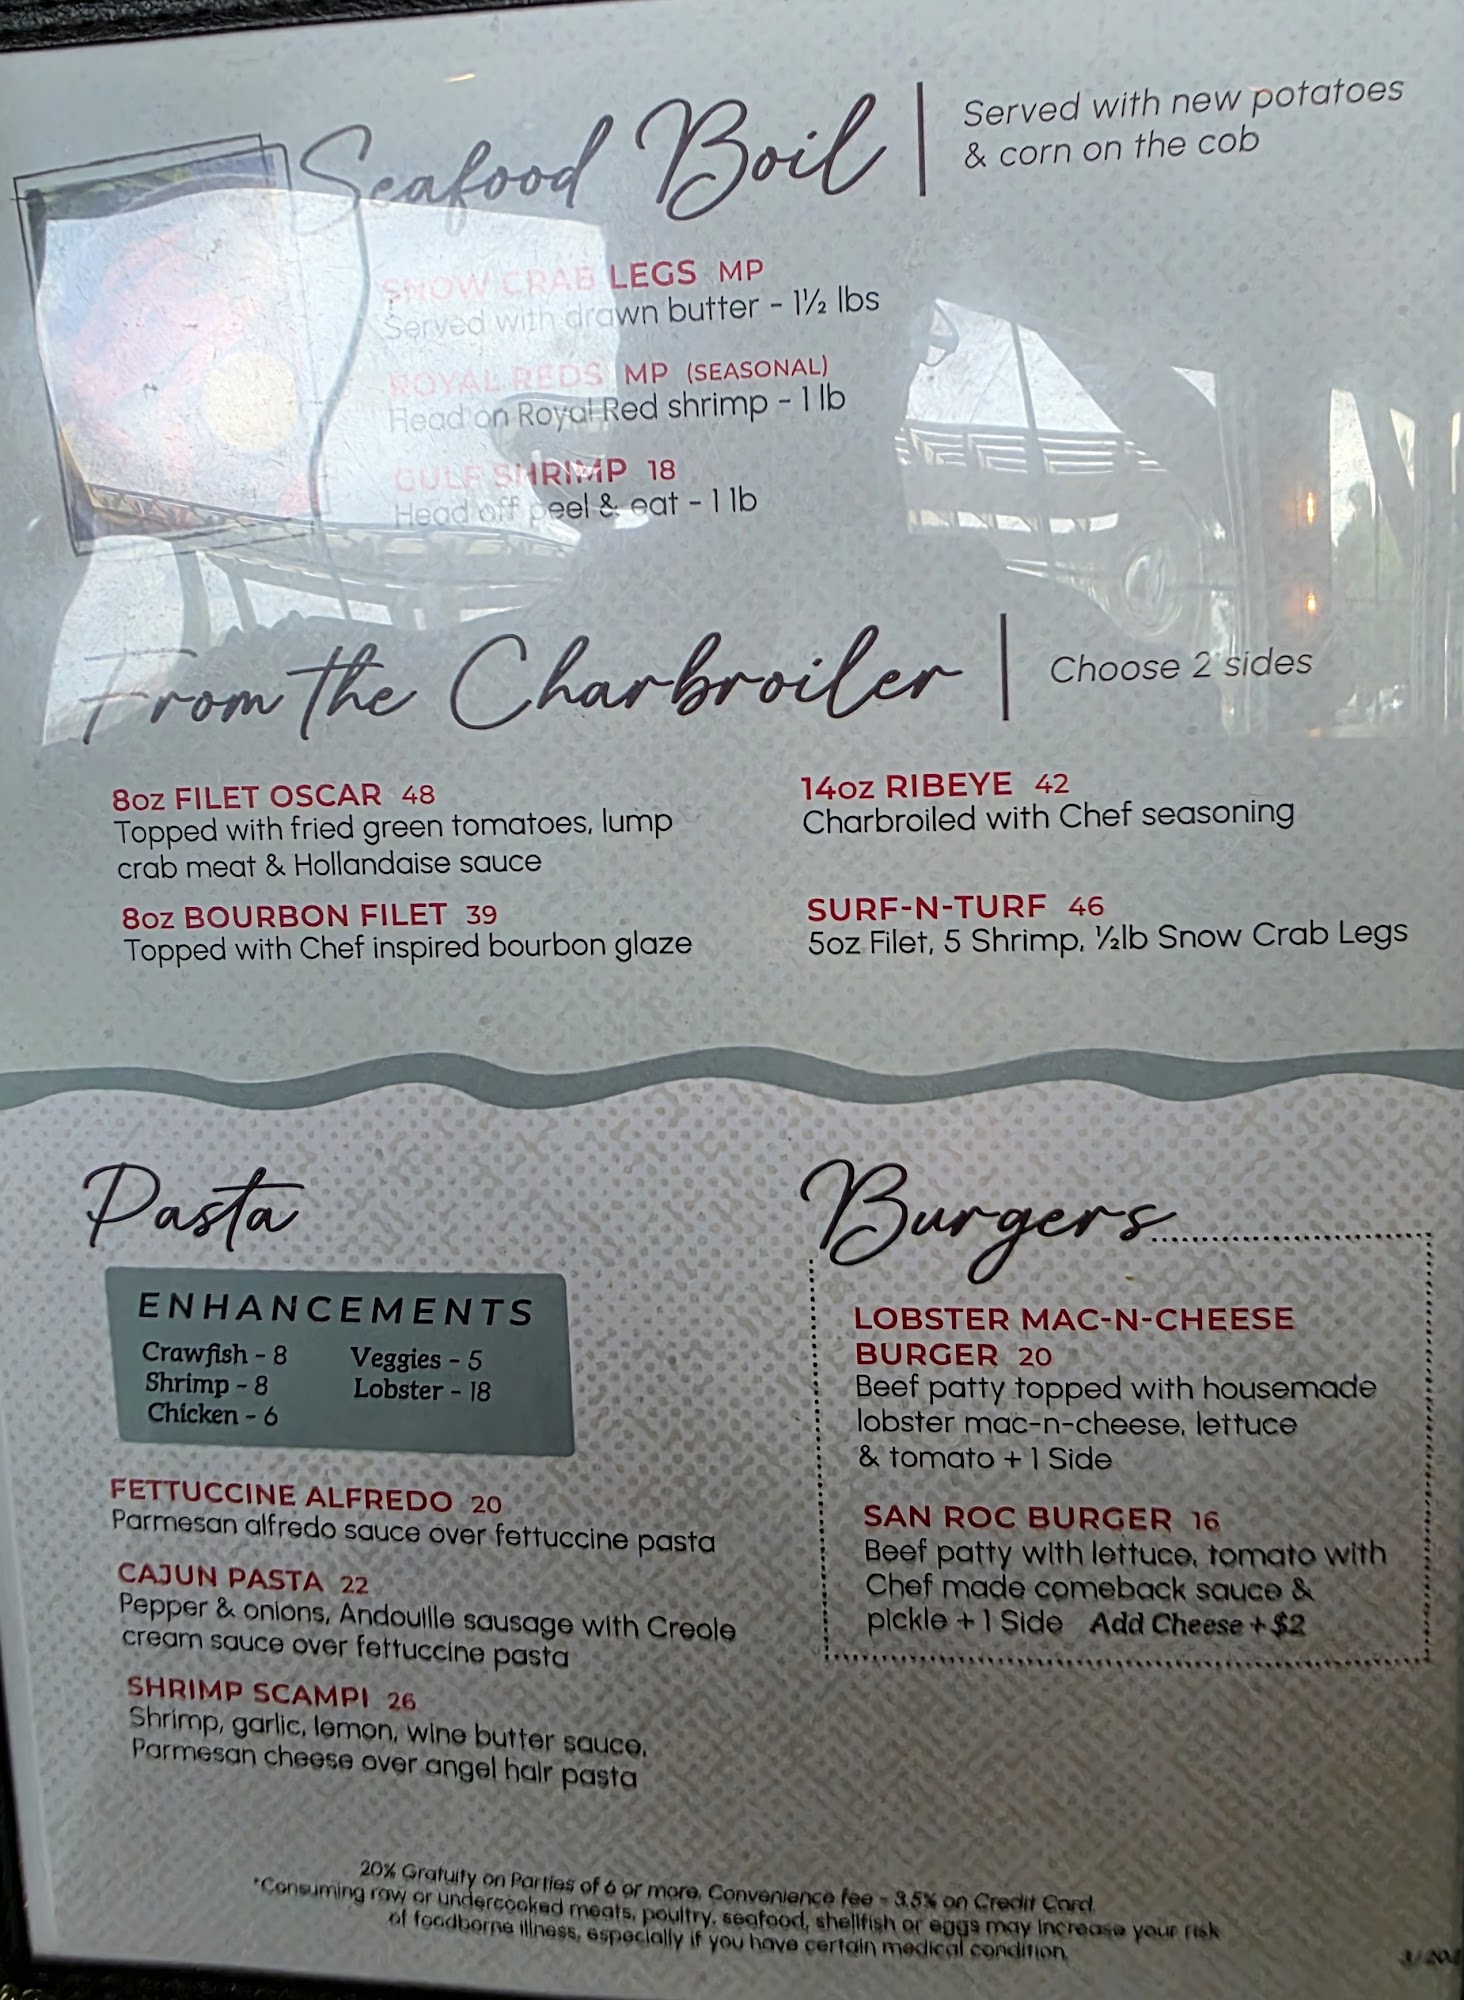 Seafood Boil
Served with new potatoes
& corn on the cob
SNOW CRAB LEGS MP
Served with drawn butter - 1½ lbs
ROYAL REDS MP (SEASONAL)
Head on Royal Red shrimp - 1 lb
GULF SHRIMP 18
Head off peel & eat - 1 lb
From the Charbroiler
Choose 2 sides
8oz FILET OSCAR 48
Topped with fried green tomatoes, lump
crab meat & Hollandaise sauce
8oz BOURBON FILET 39
Topped with Chef inspired bourbon glaze
14oz RIBEYE 42
Charbroiled with Chef seasoning
SURF-N-TURF 46
5oz Filet, 5 Shrimp, ½lb Snow Crab Legs
Pasta
ENHANCEMENTS
Crawfish - 8
Shrimp - 8
Chicken - 6
Veggies - 5
Lobster - 18
FETTUCCINE ALFREDO 20
Parmesan alfredo sauce over fettuccine pasta
CAJUN PASTA 22
Pepper & onions, Andouille sausage with Creole
cream sauce over fettuccine pasta
SHRIMP SCAMPI 26
Shrimp, garlic, lemon, wine butter sauce,
Parmesan cheese over angel hair pasta
Burgers
LOBSTER MAC-N-CHEESE
BURGER 20
Beef patty topped with housemade
lobster mac-n-cheese, lettuce
& tomato + 1 Side
SAN ROC BURGER 16
Beef patty with lettuce, tomato with
Chef made comeback sauce &
pickle + 1 Side Add Cheese + $2
20% Gratuity on Parties of 6 or more. Convenience fee - 3.5% on Credit Card.
*Consuming raw or undercooked meats, poultry, seafood, shellfish or eggs may increase your risk
of foodborne illness, especially if you have certain medical condition.